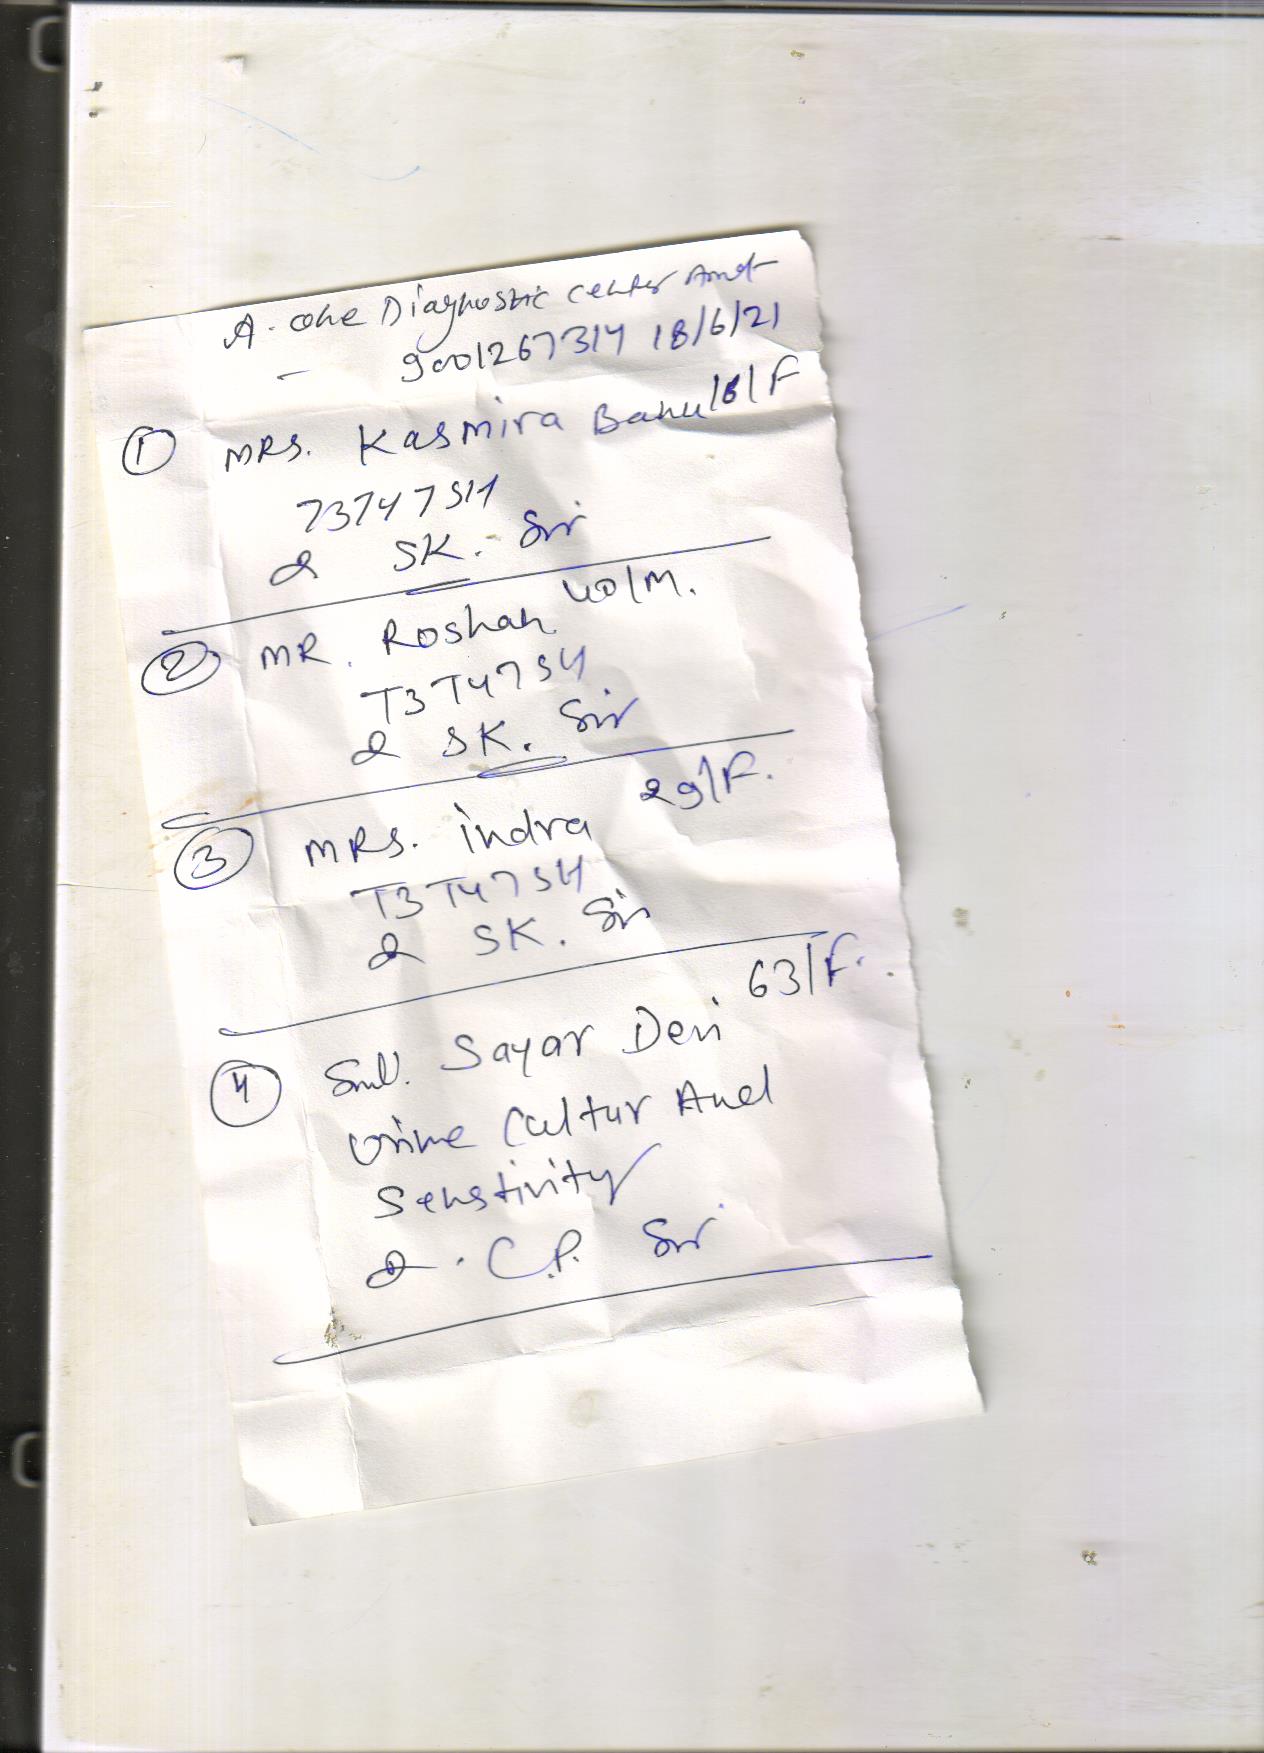 A. one Diagnostic Center Amet
9001267314 18/6/21
① MRS. Kasmira Banu 18/F
T3T47SH
SK. Sir
② MR. Roshan 40/M.
T3T47SH
SK. Sir
③ MRS. indra 29/F.
T3T47SH
SK. Sir
④ Smt. Sayar Devi 63/F.
Urine Caltur And
Senstivity
C.P. Sir